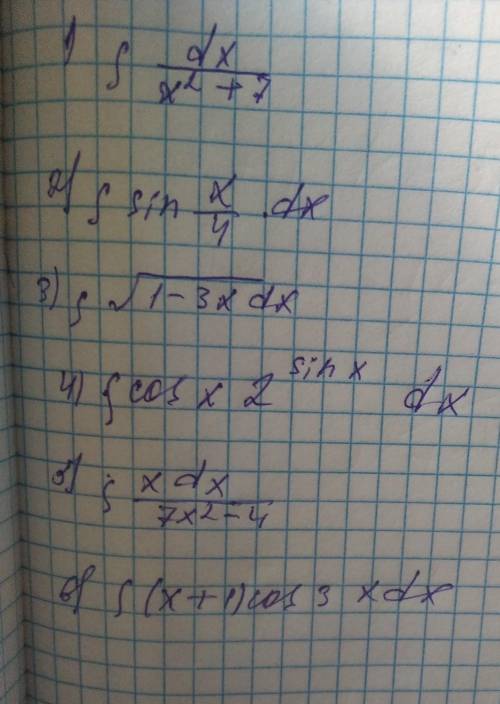 1) ∫ dx / (x² + 7)
2) ∫ sin x/4 · dx
3) ∫ √(1 - 3x) dx
4) ∫ cos x 2^(sin x) dx
5) ∫ x dx / (7x² - 4)
6) ∫ (x + 1) cos 3 x dx